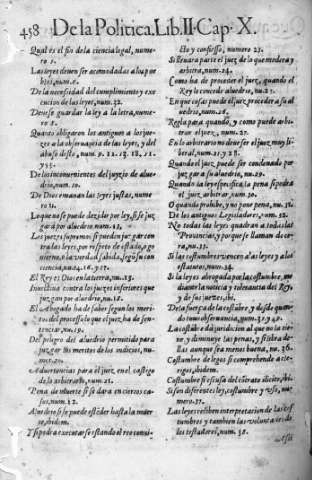 458 De la Politica. Lib. II. Cap. X.
Qual es el fin de la ciencia legal, nume-
ro 1.
Las leyes deven ser acomodadas a los pue
blos, num. 6.
De la necessidad del cumplimiento y exe
cucion de las leyes, num. 32.
Devese guardar la ley a la letra, nume-
ro 8.
Quanto obligaron los antiguos a los jue-
zes a la observancia de las leyes, y del
abuso desto, num. 9. 11. 12. 18. 21.
y 55.
De los inconvenientes del juyzio de alve-
drio, num. 10.
De Dios emanan las leyes justas, nume
ro 11.
Lo que no se puede dezidir por ley, si se juz
gará por alvedrio num. 13.
Los juezes supremos si pueden juzgar con
tra las leyes, por respeto de estado, o go
vierno, o la verdad sabida, segun su con
ciencia, nu. 14. 16. y 17.
El Rey es Dios en la tierra, nu. 15.
Invectiva contra los juezes inferiores que
juzgan por alvedrio, num. 18.
El Abogado ha de saber segun los meri-
tos del processo lo que el juez ha de sen-
tenciar, nu. 19.
Del peligro del alvedrio permitido para
juzgar los meritos de los indicios, nu-
mero 20.
Advertencias para el juez, en el castigo
de lo arbitrario, num. 21.
Pena de muerte si se dara en ciertos ca-
sos, num. 22.
Alvedrio si se puede estéder hasta la muer
te, ibidem.
Y si podra executarse estando el reo convi-
cto y confiesso, numero 23.
Si llevará parte el juez de la que modera y
arbitra, num. 24.
Como ha de proceder el juez, quando el
Rey le concede alvedrio, nu. 25.
En que cosas puede el juez proceder a su al
vedrio, num. 26.
Regla para quando, y como puede arbi-
trar el juez, num. 27.
En lo arbitrario no deve ser el juez muy li-
beral, num. 21. y 28.
Quando el juez, puede ser condenado por
juzgar a su alvedrio, num. 29.
Quando la ley especifica, la pena si podra
el juez arbitrar, num. 30.
O quando prohibe, y no pone pena, nu. 31.
De los antiguos Legisladores, num. 32.
No todas las leyes quadran a todas las
Provincias, y porque se llaman dere-
cho, nu. 33.
Si las costumbres vencen a las leyes y a los
estatutos, num. 34.
Si las leyes abrogadas por la costumbre, me
diante la noticia y tolerancia del Rey,
y de sus juezes, ibi.
De la fuerça de la costumbre, y desde quan-
do tuvo observancia, num. 35. y 40.
La costumbre da juridicion al que no la tie-
ne y diminuye las penas, y si obra de-
llas aunque sea menos buena, nu. 36.
Costumbre de legos si comprehende a cle-
rigos, ibidem.
Costumbre si escusa del contrato ilicito, ibi.
Si son diferentes ley, costumbre y uso, nu-
mero 37.
Las leyes reciben interpretacion de las cos
tumbres y tambien las voluntades de
los testadores, num. 38.